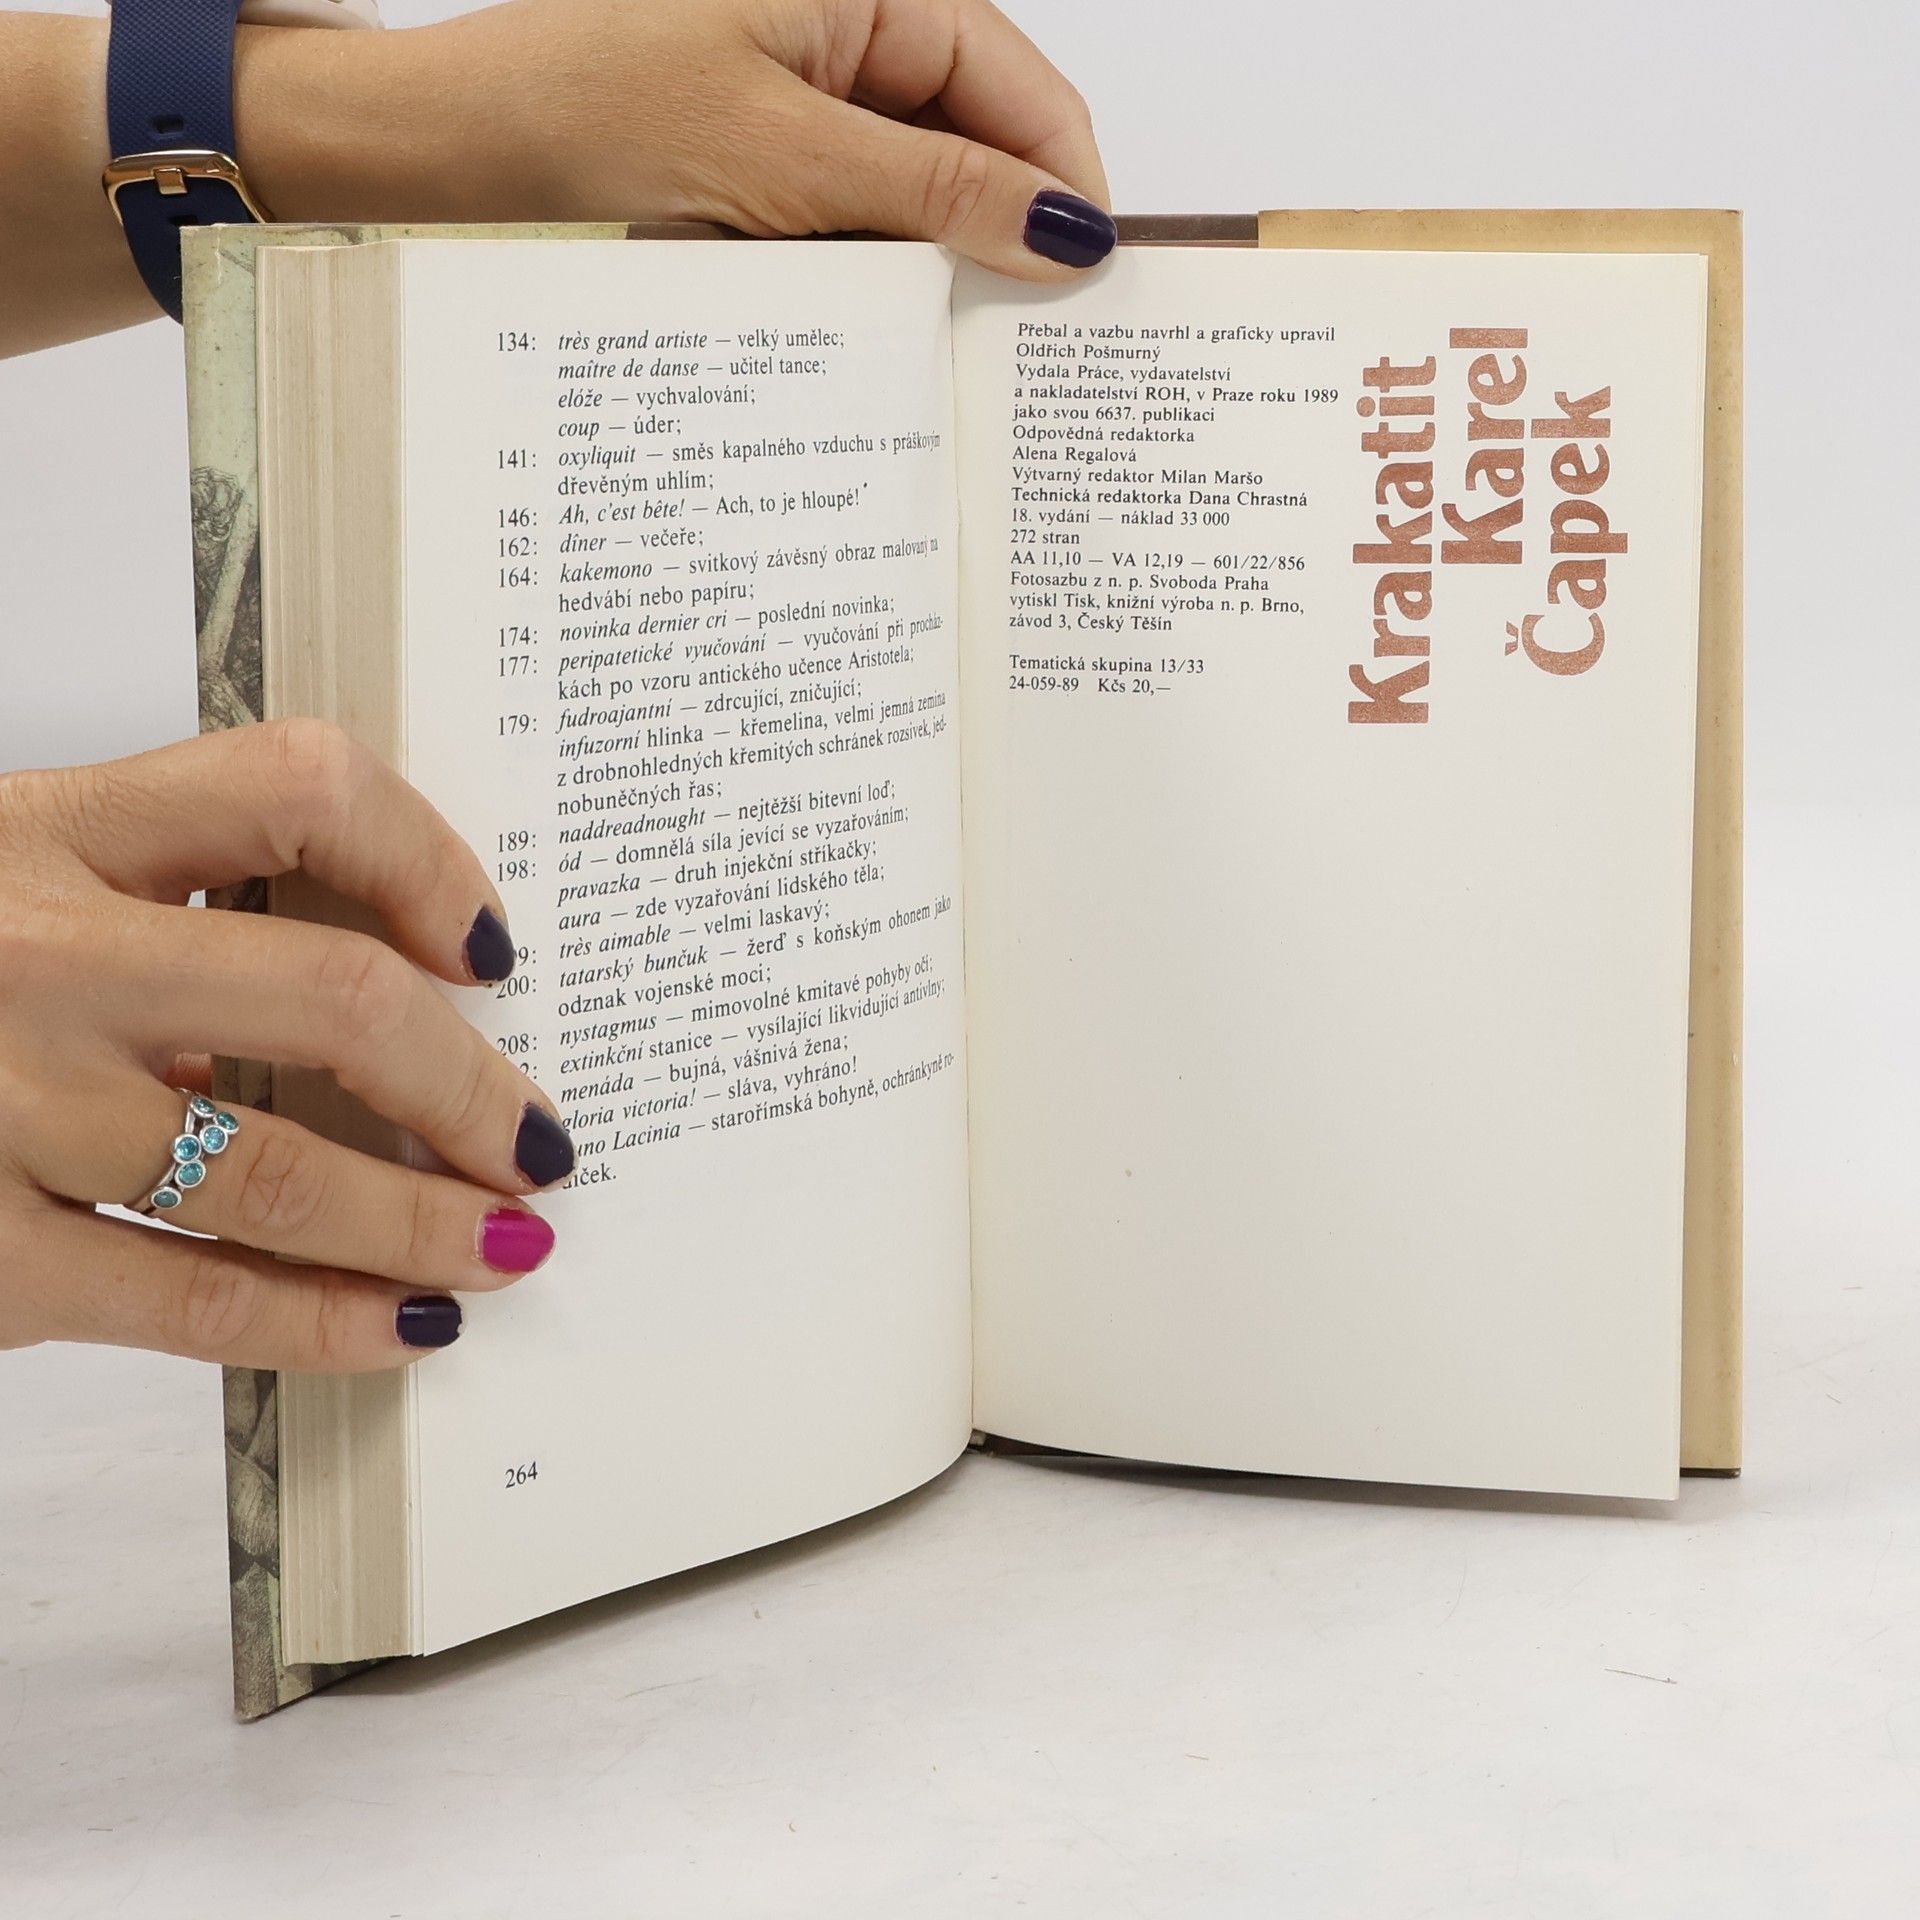 134: très grand artiste — velký umělec;
maître de danse — učitel tance;
elóže — vychvalování;
coup — úder;
141: oxyliquit — směs kapalného vzduchu s práškovým
dřevěným uhlím;
146: Ah, c'est bête! — Ach, to je hloupé!
162: dîner — večeře;
164: kakemono — svitkový závěsný obraz malovaný na
hedvábí nebo papíru;
174: novinka dernier cri — poslední novinka;
177: peripatetické vyučování — vyučování při procház-
kách po vzoru antického učence Aristotela;
179: fudroajantní — zdrcující, zničující;
infuzorní hlinka — křemelina, velmi jemná zemina
z drobnohledných křemitých schránek rozsivek, jed-
nobuněčných řas;
189: naddreadnought — nejtěžší bitevní loď;
198: ód — domnělá síla jevící se vyzařováním;
pravazka — druh injekční stříkačky;
aura — zde vyzařování lidského těla;
9: très aimable — velmi laskavý;
200: tatarský bunčuk — žerď s koňským ohonem jako
odznak vojenské moci;
208: nystagmus — mimovolné kmitavé pohyby očí;
2: extinkční stanice — vysílající likvidující antivlny;
menáda — bujná, vášnivá žena;
gloria victoria! — sláva, vyhráno!
uno Lacinia — starořímská bohyně, ochránkyně ro-
diček.
264
Přebal a vazbu navrhl a graficky upravil
Oldřich Pošmurný
Vydala Práce, vydavatelství
a nakladatelství ROH, v Praze roku 1989
jako svou 6637. publikaci
Odpovědná redaktorka
Alena Regalová
Výtvarný redaktor Milan Maršo
Technická redaktorka Dana Chrastná
18. vydání — náklad 33 000
272 stran
AA 11,10 — VA 12,19 — 601/22/856
Fotosazbu z n. p. Svoboda Praha
vytiskl Tisk, knižní výroba n. p. Brno,
závod 3, Český Těšín
Tematická skupina 13/33
24-059-89 Kčs 20,—
Krakatit
Karel
Čapek